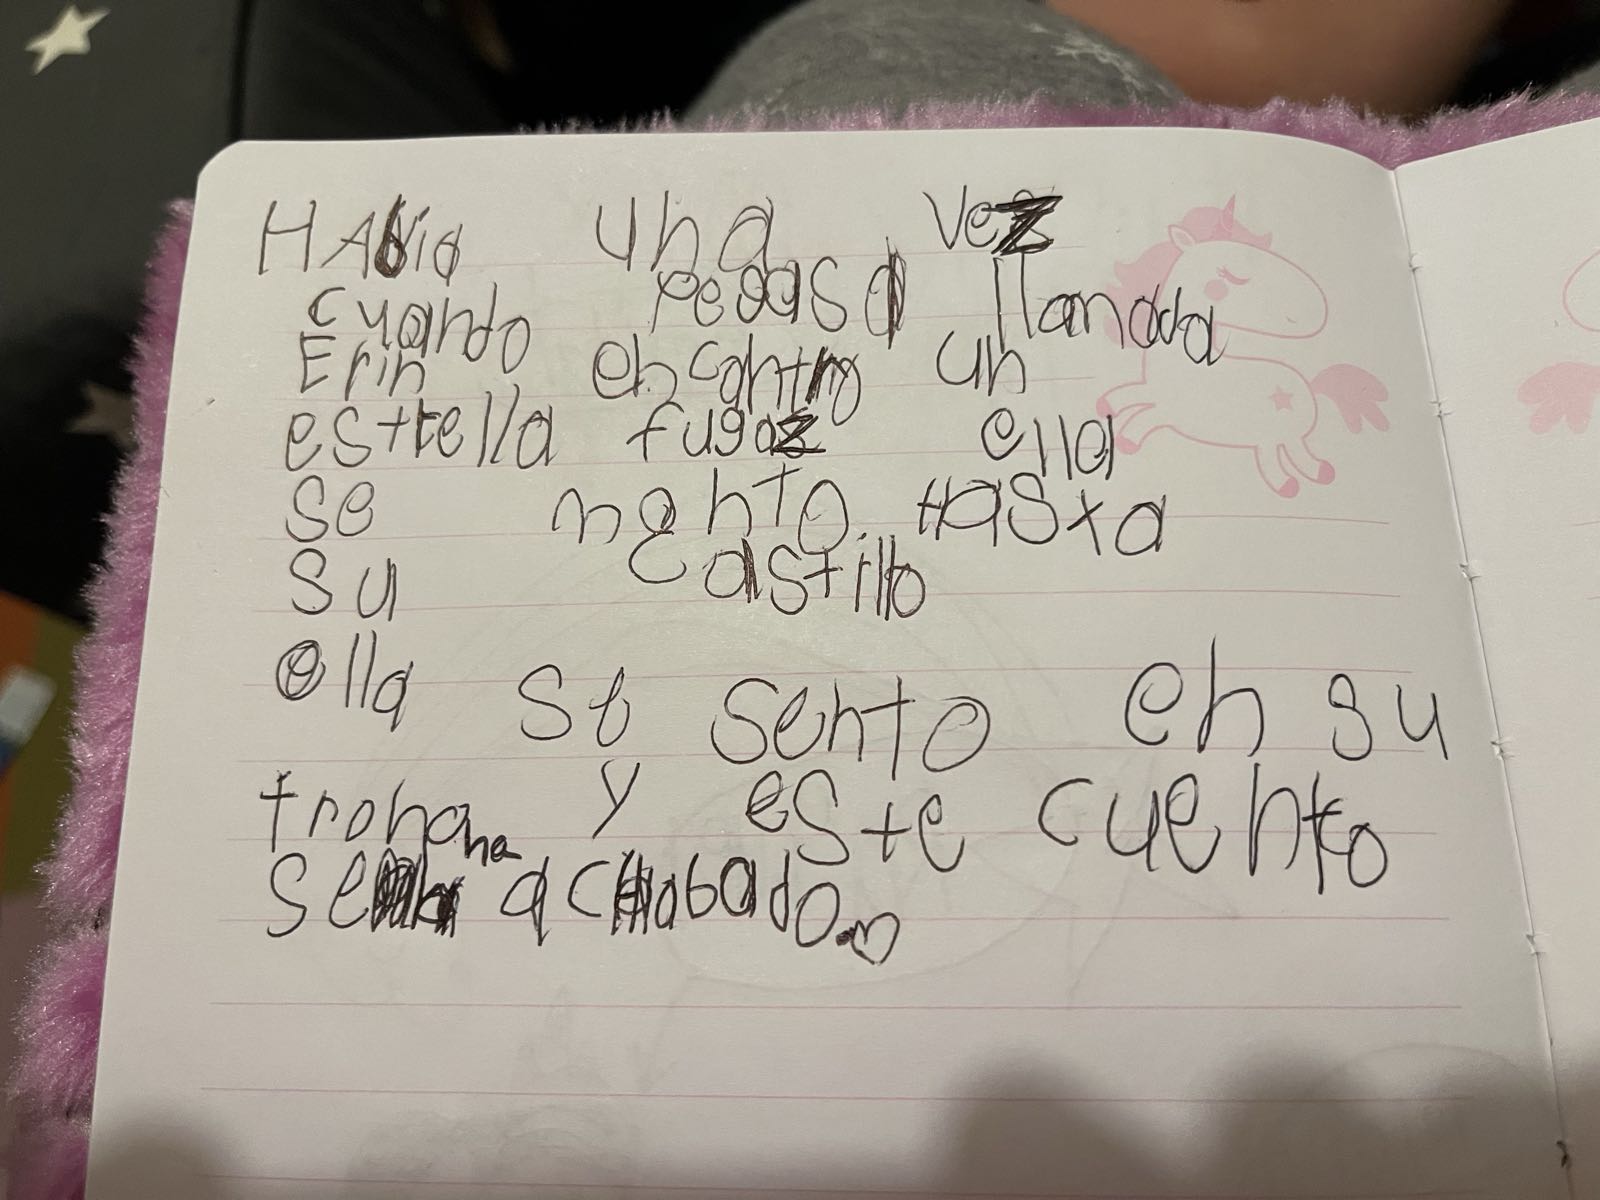 HAbia una vez
cuando pegasa llamada
Erin encontro un
estrella fugaz ella
se monto Hasta
su castillo
ella se sento en su
trona y este cuento
se ha acabado.